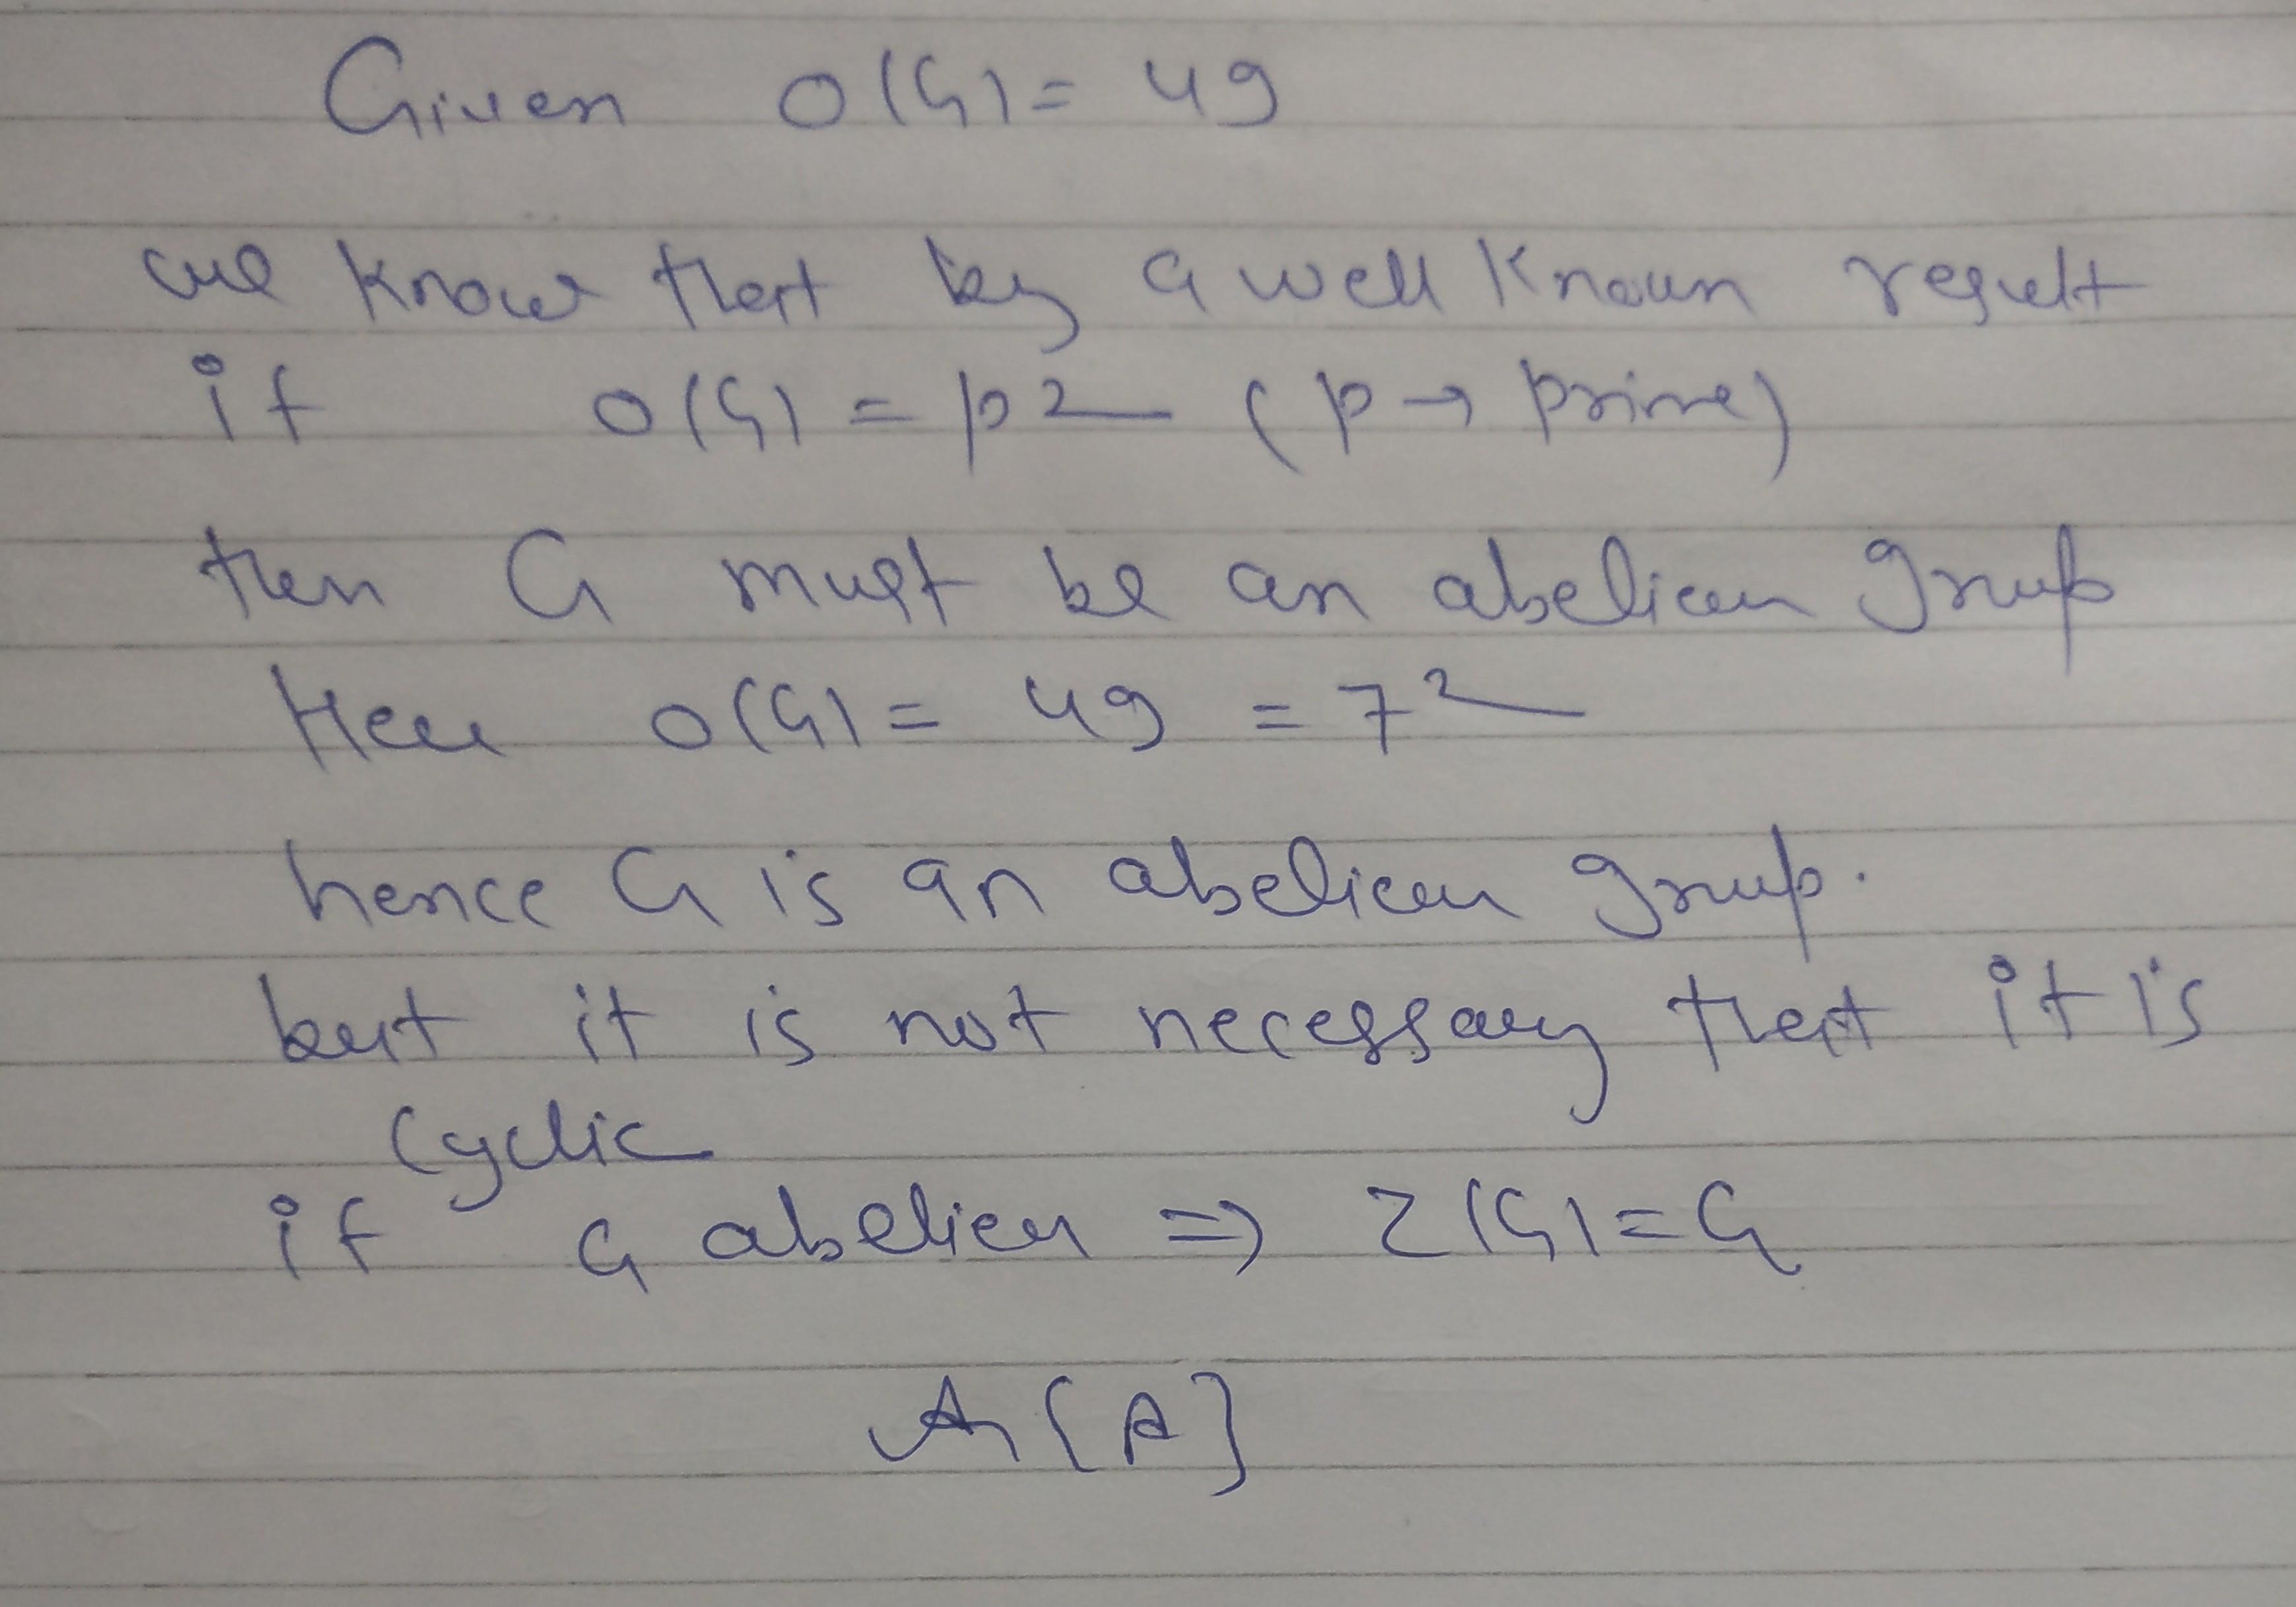 Given O(G) = 49
we know that by a well known result
if O(G) = p2 (p → prime)
then G must be an abelian group
Here O(G) = 49 = 7²
hence G is an abelian group.
but it is not necessary that it is
cyclic
if G abelian ⇒ Z(G) = G
A [A]